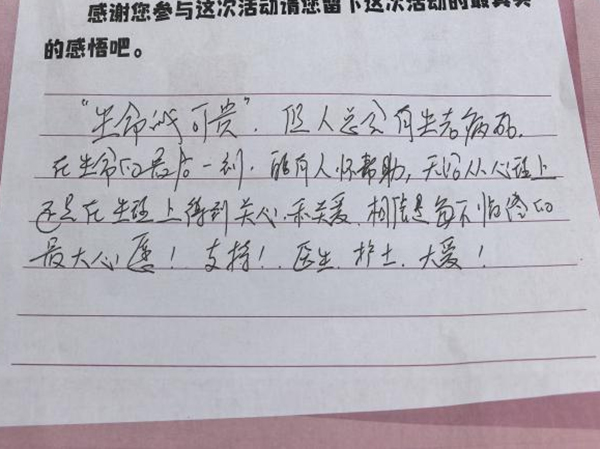 感谢您参与这次活动请您留下这次活动的最真实
的感悟吧。
"生命诚可贵"．但人总会有生老病死．
在生命的最后一刻．能有人怀帮助，无论从心理上
还是在生理上得到关心．和关爱．相信是每个临终的
最大心愿！支持！医生．护士．大爱！